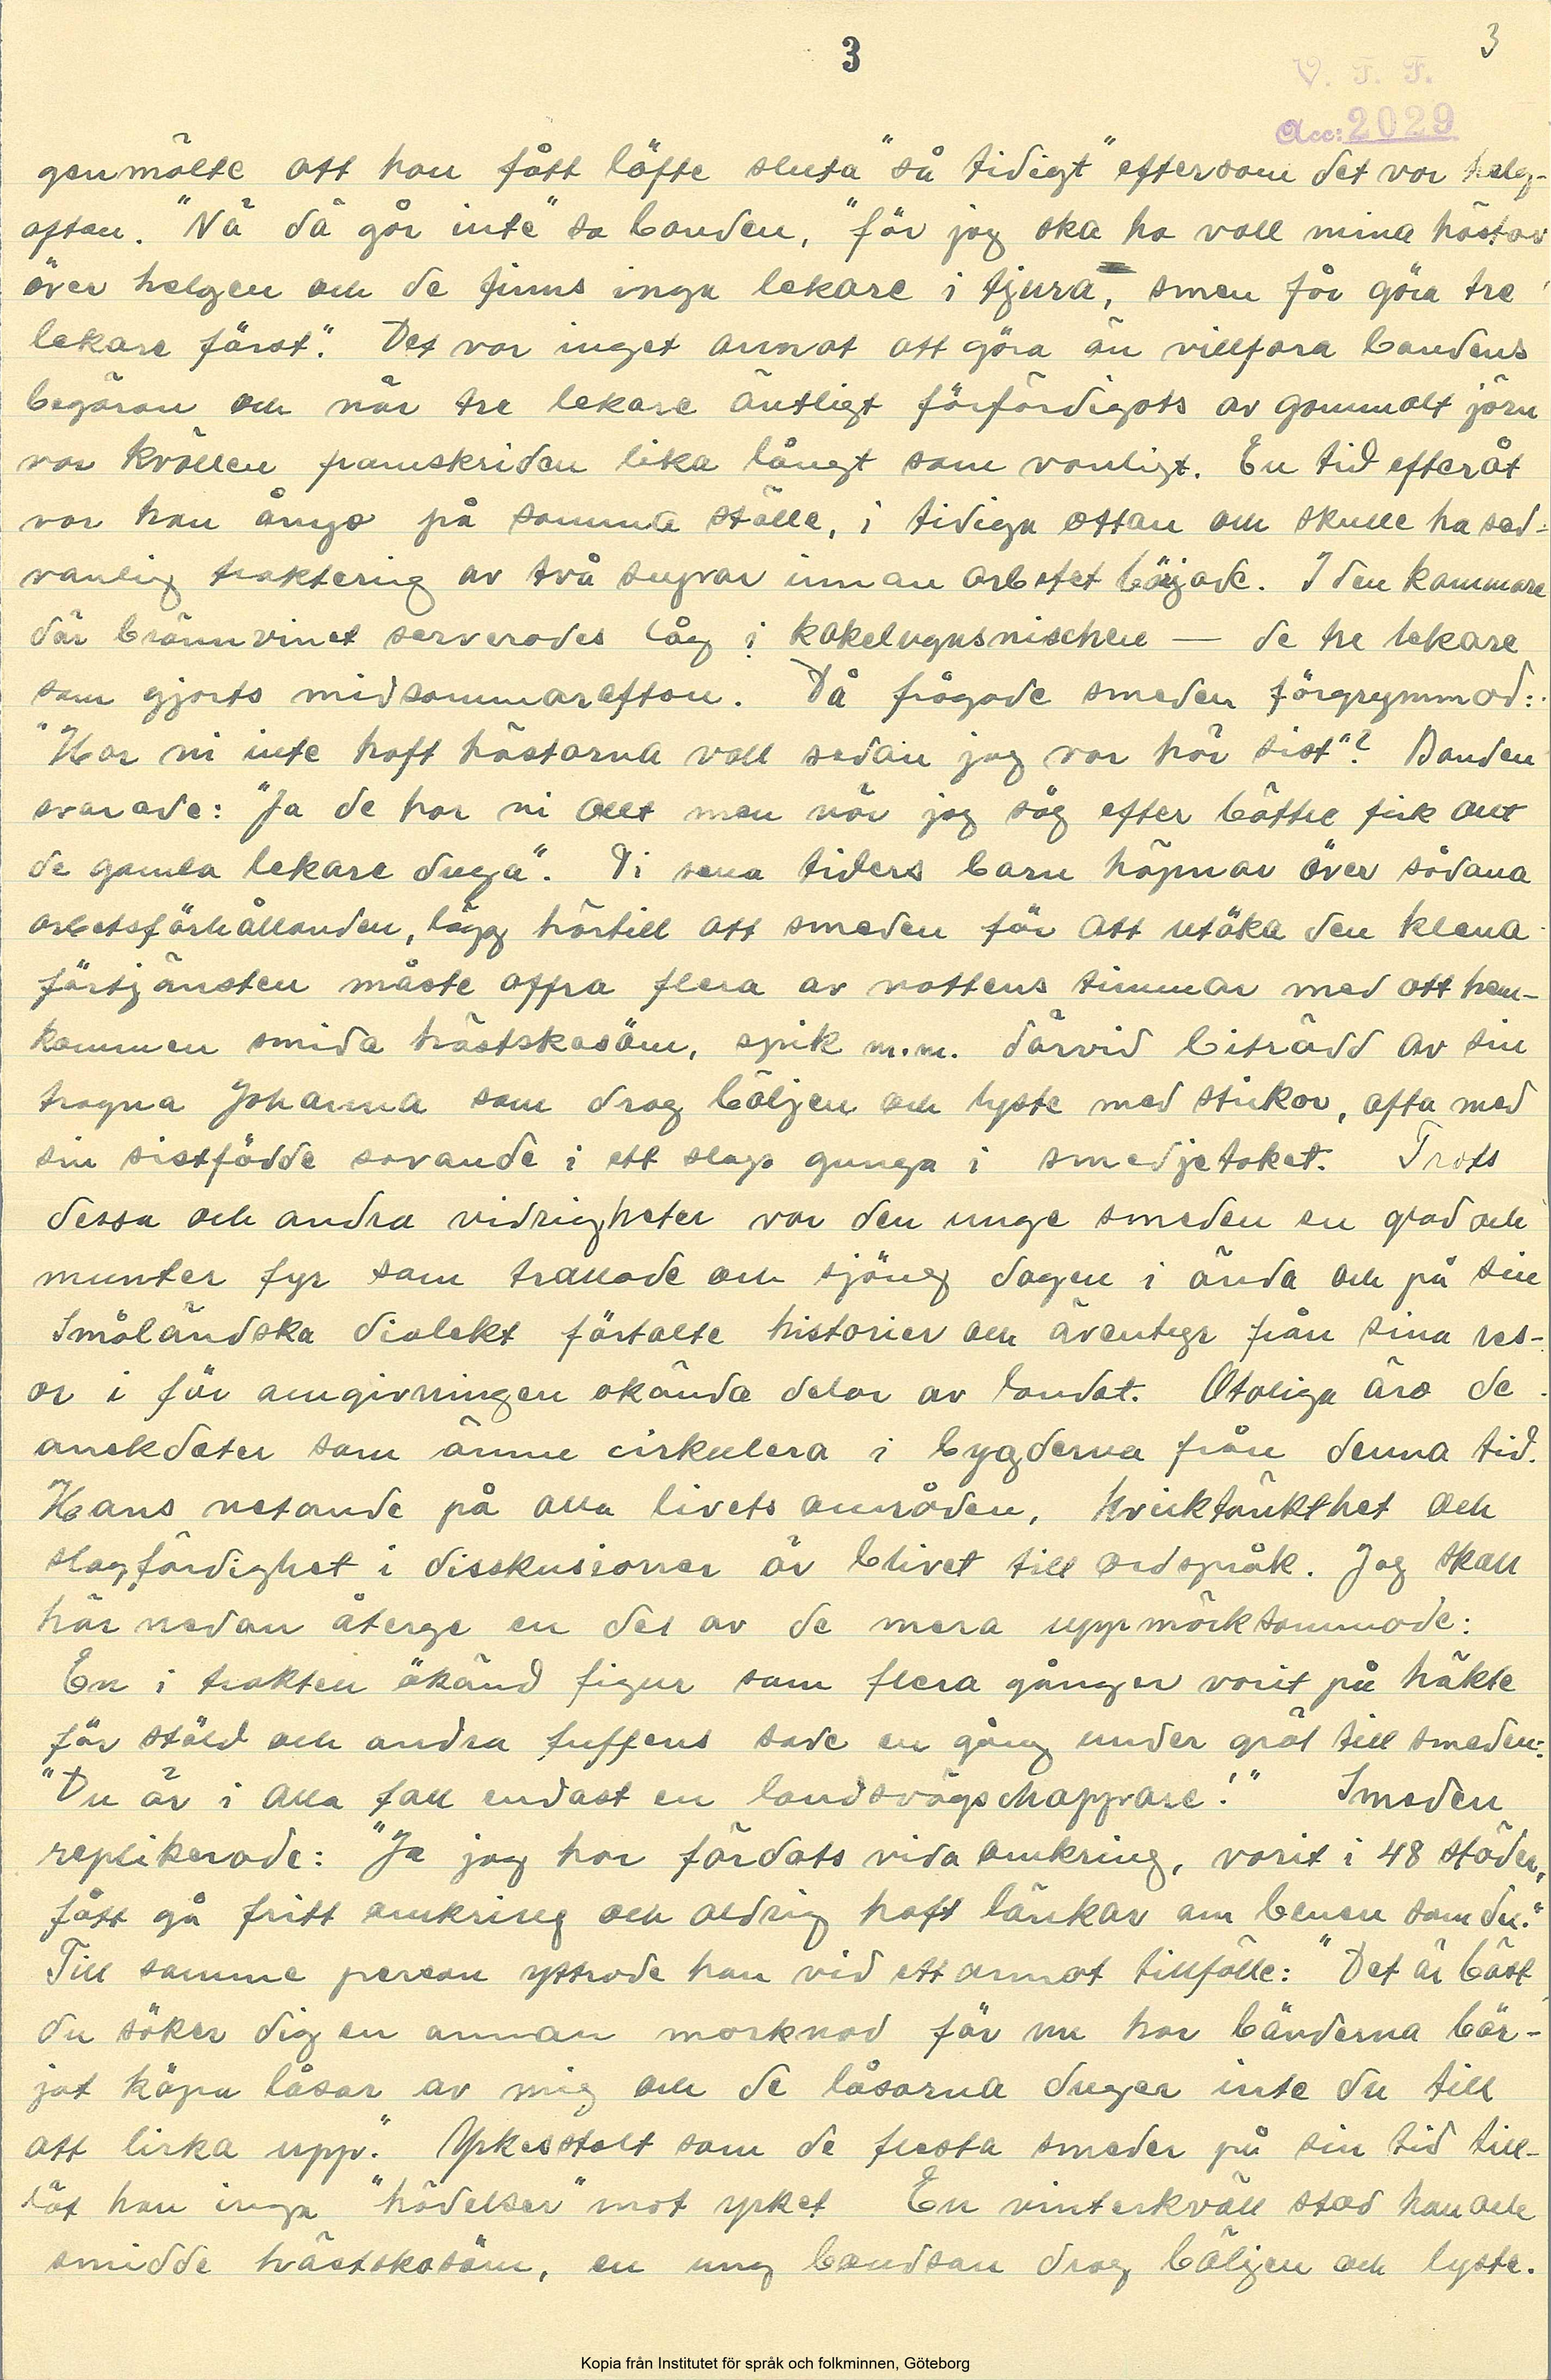 3
3
V. F. F.
Acc: 2029
genmälte att han fått löfte sluta "så tidigt" eftersom det var helg-
afton. "Nä dä går inte" sa bonden, "för jag ska ha vall mina hästar
över helgen och de finns inga lekare i tjura, smen får göra tre
lekare först". Det var inget annat att göra än villfara bondens
begäran och når tre lekare äntligt förfärdigats av gammalt järn
var kvällen framskriden lika långt som vanligt. En tid efteråt
var han ånyo på samma ställe, i tidiga ottan och skulle ha sed-
vanlig traktering av två supar innan arbetet började. I den kammare
där brännvinet serverades låg i kakelugnsnischen — de tre lekare
som gjorts midsommarafton. Då frågade smeden förgrymmad:
"Har ni inte haft hästarna vall sedan jag var här sist"? Bonden
svarade: "Ja de har ni allt men när jag såg efter bättre fick allt
de gamla lekare duga". Vi sena tiders barn häpnar över sådana
arbetsförhållanden, lägg härtill att smeden för att utöka den klena
förtjänsten måste offra flera av nattens timmar med att hem-
kommen smida hästskosöm, spik m.m. därvid biträdd av sin
trogna Johanna som drog bäljen och lyste med stickor, ofta med
sin sistfödde sovande i ett slags gunga i smedjetaket. Trots
dessa och andra vidrigheter var den unge smeden en glad och
munter fyr som trallade och sjöng dagen i ända och på sin
Småländska dialekt förtalte historier och äventyr från sina res-
or i för omgivningen okända delar av landet. Otaliga äro de
anekdoter som ännu cirkulera i bygderna från denna tid.
Hans vetande på alla livets områden, kvicktänkthet och
slagfärdighet i disskusioner är blivet till ordspråk. Jag skall
här nedan återge en del av de mera uppmärksammade:
En i trakten ökänd figur som flera gånger varit på häkte
för stöld och andra fuffens sade en gång under gräl till smeden:
"Du är i alla fall endast en landsvägschappare!" Smeden
replikerade: "Ja jag har färdats vida omkring, varit i 48 städer,
fått gå fritt omkring och aldrig haft länkar om benen som du."
Till samme person yttrade han vid ett annat tillfälle: "Det är bäst
du söker dig en annan marknad för nu har bönderna bör-
jat köpa låsar av mig och de låsarna duger inte du till
att lirka upp." Yrkesstolt som de flesta smeder på sin tid till-
lät han inga "hädelser" mot yrket En vinterkväll stod han och
smidde hästskosöm, en ung bondson drog bäljen och lyste.
Kopia från Institutet för språk och folkminnen, Göteborg